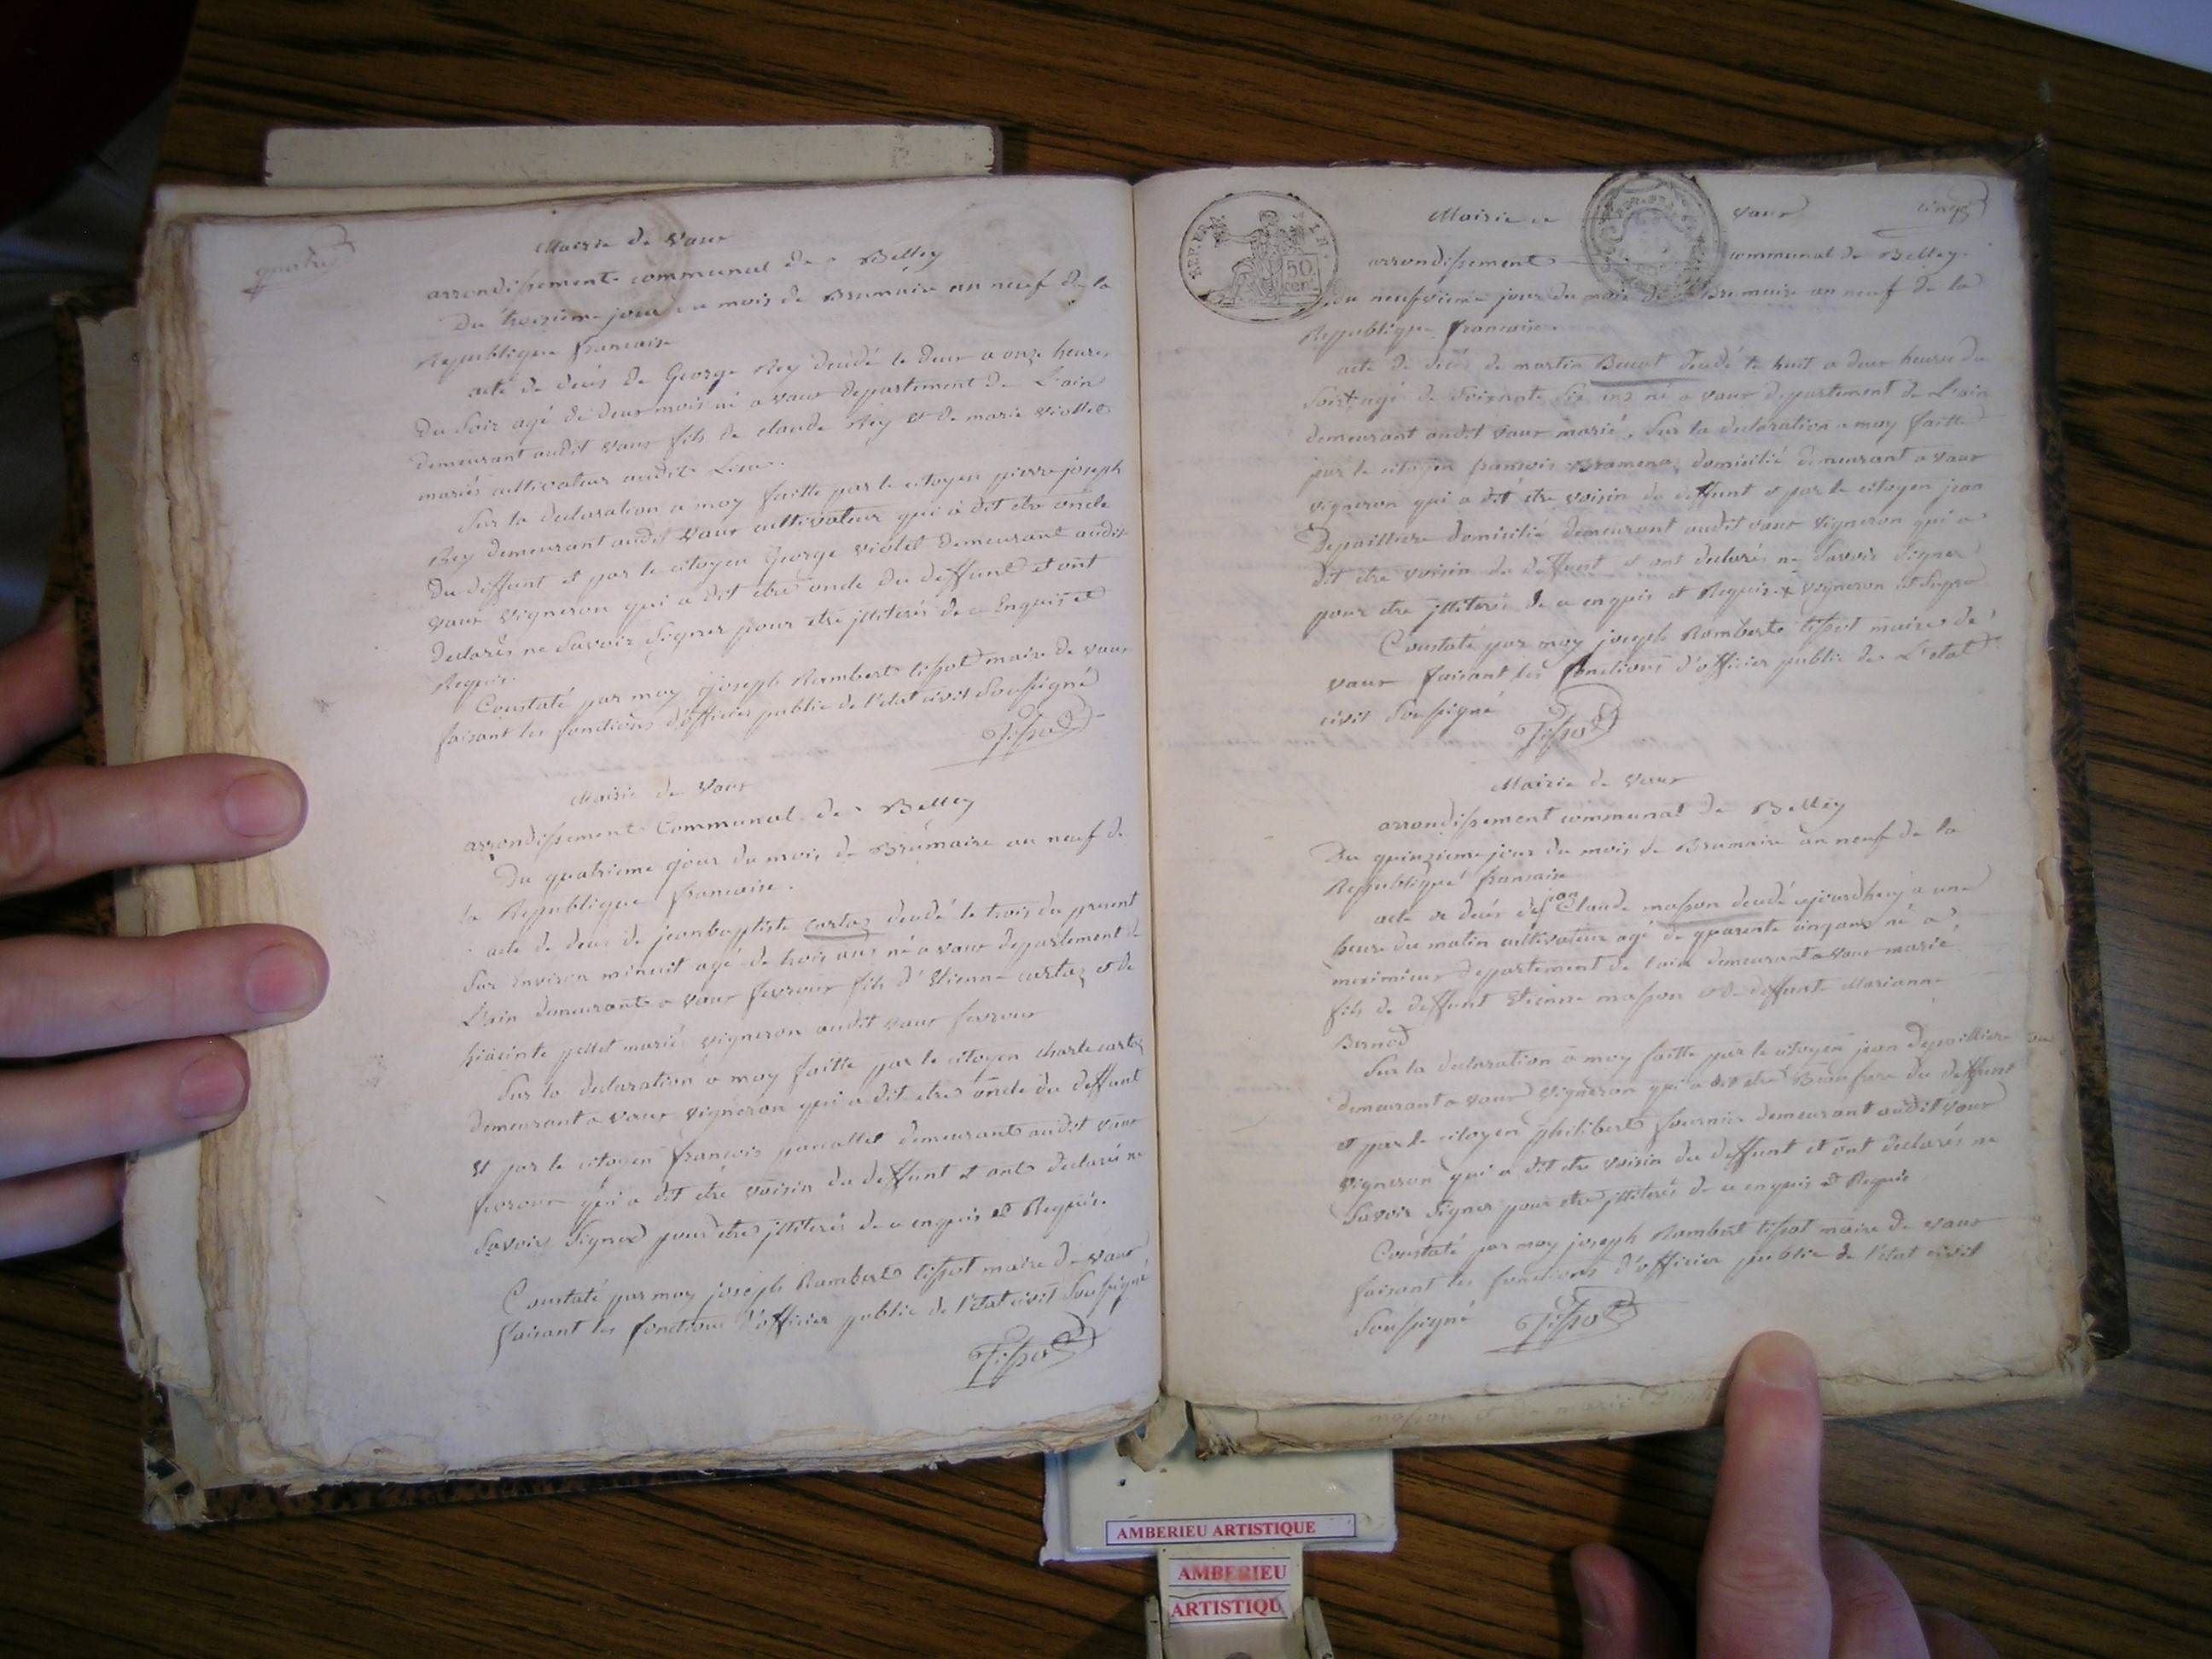 quatre
Mairie de Vaux
arrondissement communal de Belley
Du troisieme jour du mois de Brumaire an neuf de la
Republique francaise
acte de decés de George Rey decédé le deux a onze heures
du soir agé de deux mois né a vaux departement de L'ain
demeurant audit vaux fils de claude Rey et de marie viollet
mariés cultivateur audit Lieu.
Sur la declaration a moy faitte par le citoyen pierre joseph
Rey demeurant audit vaux cultivateur qui a dit etre oncle
du deffunt et par le citoyen George violet demeurant audit
vaux vigneron qui a dit etre oncle du deffunt et ont
declarés ne savoir signer pour etre jlliterés de ce Enquis et
Requis.
Constaté par moy joseph Rambert tissot maire de vaux
faisant les fonctions d'officier public de l'état civil soussigné
Tissot
Mairie de Vaux
arrondissement Communal de Belley
Du quatrieme jour du mois de Brumaire an neuf de
la Republique francaise.
acte de decés de jean baptiste cartaz decédé le trois du present
sur Environ minuit agé de trois ans né a vaux departement de
L'ain demeurant a vaux fevroux fils d'Etienne cartaz et de
hiacinte pellet mariés vigneron audit vaux fevroux
Sur la declaration a moy faitte par le citoyen charle cartaz
demeurant a vaux vigneron qui a dit etre oncle du deffunt
Et par le citoyen françois demeurant audit vaux
fevroux qui a dit etre voisin du deffunt et ont declaré ne
savoir signer pour etre jlliterés de ce enquis et Requis.
Constaté par moy joseph Rambert tissot maire de vaux
faisant les fonctions d'officier public de l'état civil soussigné
Tissot
REP. FRA.
50
CEN.
Mairie de vaux cinq
arrondissement communal de Belley.
du neufvieme jour du mois de Brumaire an neuf de la
Republique francaise.
acte de decés de martin Benot decédé le huit a deux heures du
soir agé de soixante six ans né a vaux departement de L'ain
demeurant audit vaux marié. Sur la declaration a moy faitte
par le citoyen françois Bramerez domicilié demeurant a vaux
vigneron qui a dit etre voisin du deffunt et par le citoyen jean
Depailliere domicilié demeurant audit vaux vigneron qui a
dit etre voisin du deffunt et ont declarés ne savoir signer
pour etre jlliterés de ce enquis et Requis x vigneron
Constaté par moy joseph Rambert tissot maire de
vaux faisant les fonctions d'officier public de L'etat
civil soussigné
Tissot
Mairie de Vaux
arrondissement communal de Belley
Du quinzieme jour du mois de Brumaire an neuf de la
Republique francaise
acte de decés de jean Claude masson decedé ajourdhuy a une
heure du matin cultivateur agé de quarente cinq ans né a
meximieux departement de l'ain demeurant a vaux marié
fils de deffunt Etienne masson et de deffunte Marianne
Bernod
Sur la declaration a moy faitte par le citoyen jean depailliere
demeurant a vaux vigneron qui a dit etre Beaufrere du deffunt
et par le citoyen philibert fournier demeurant audit vaux
vigneron qui a dit etre voisin du deffunt et ont declarés ne
savoir signer pour etre jlliterés de ce enquis et Requis
Constaté par moy joseph Rambert tissot maire de vaux
faisant les fonctions d'officier public de l'état civil
soussigné
Tissot
AMBERIEU ARTISTIQUE
AMBERIEU
ARTISTIQU